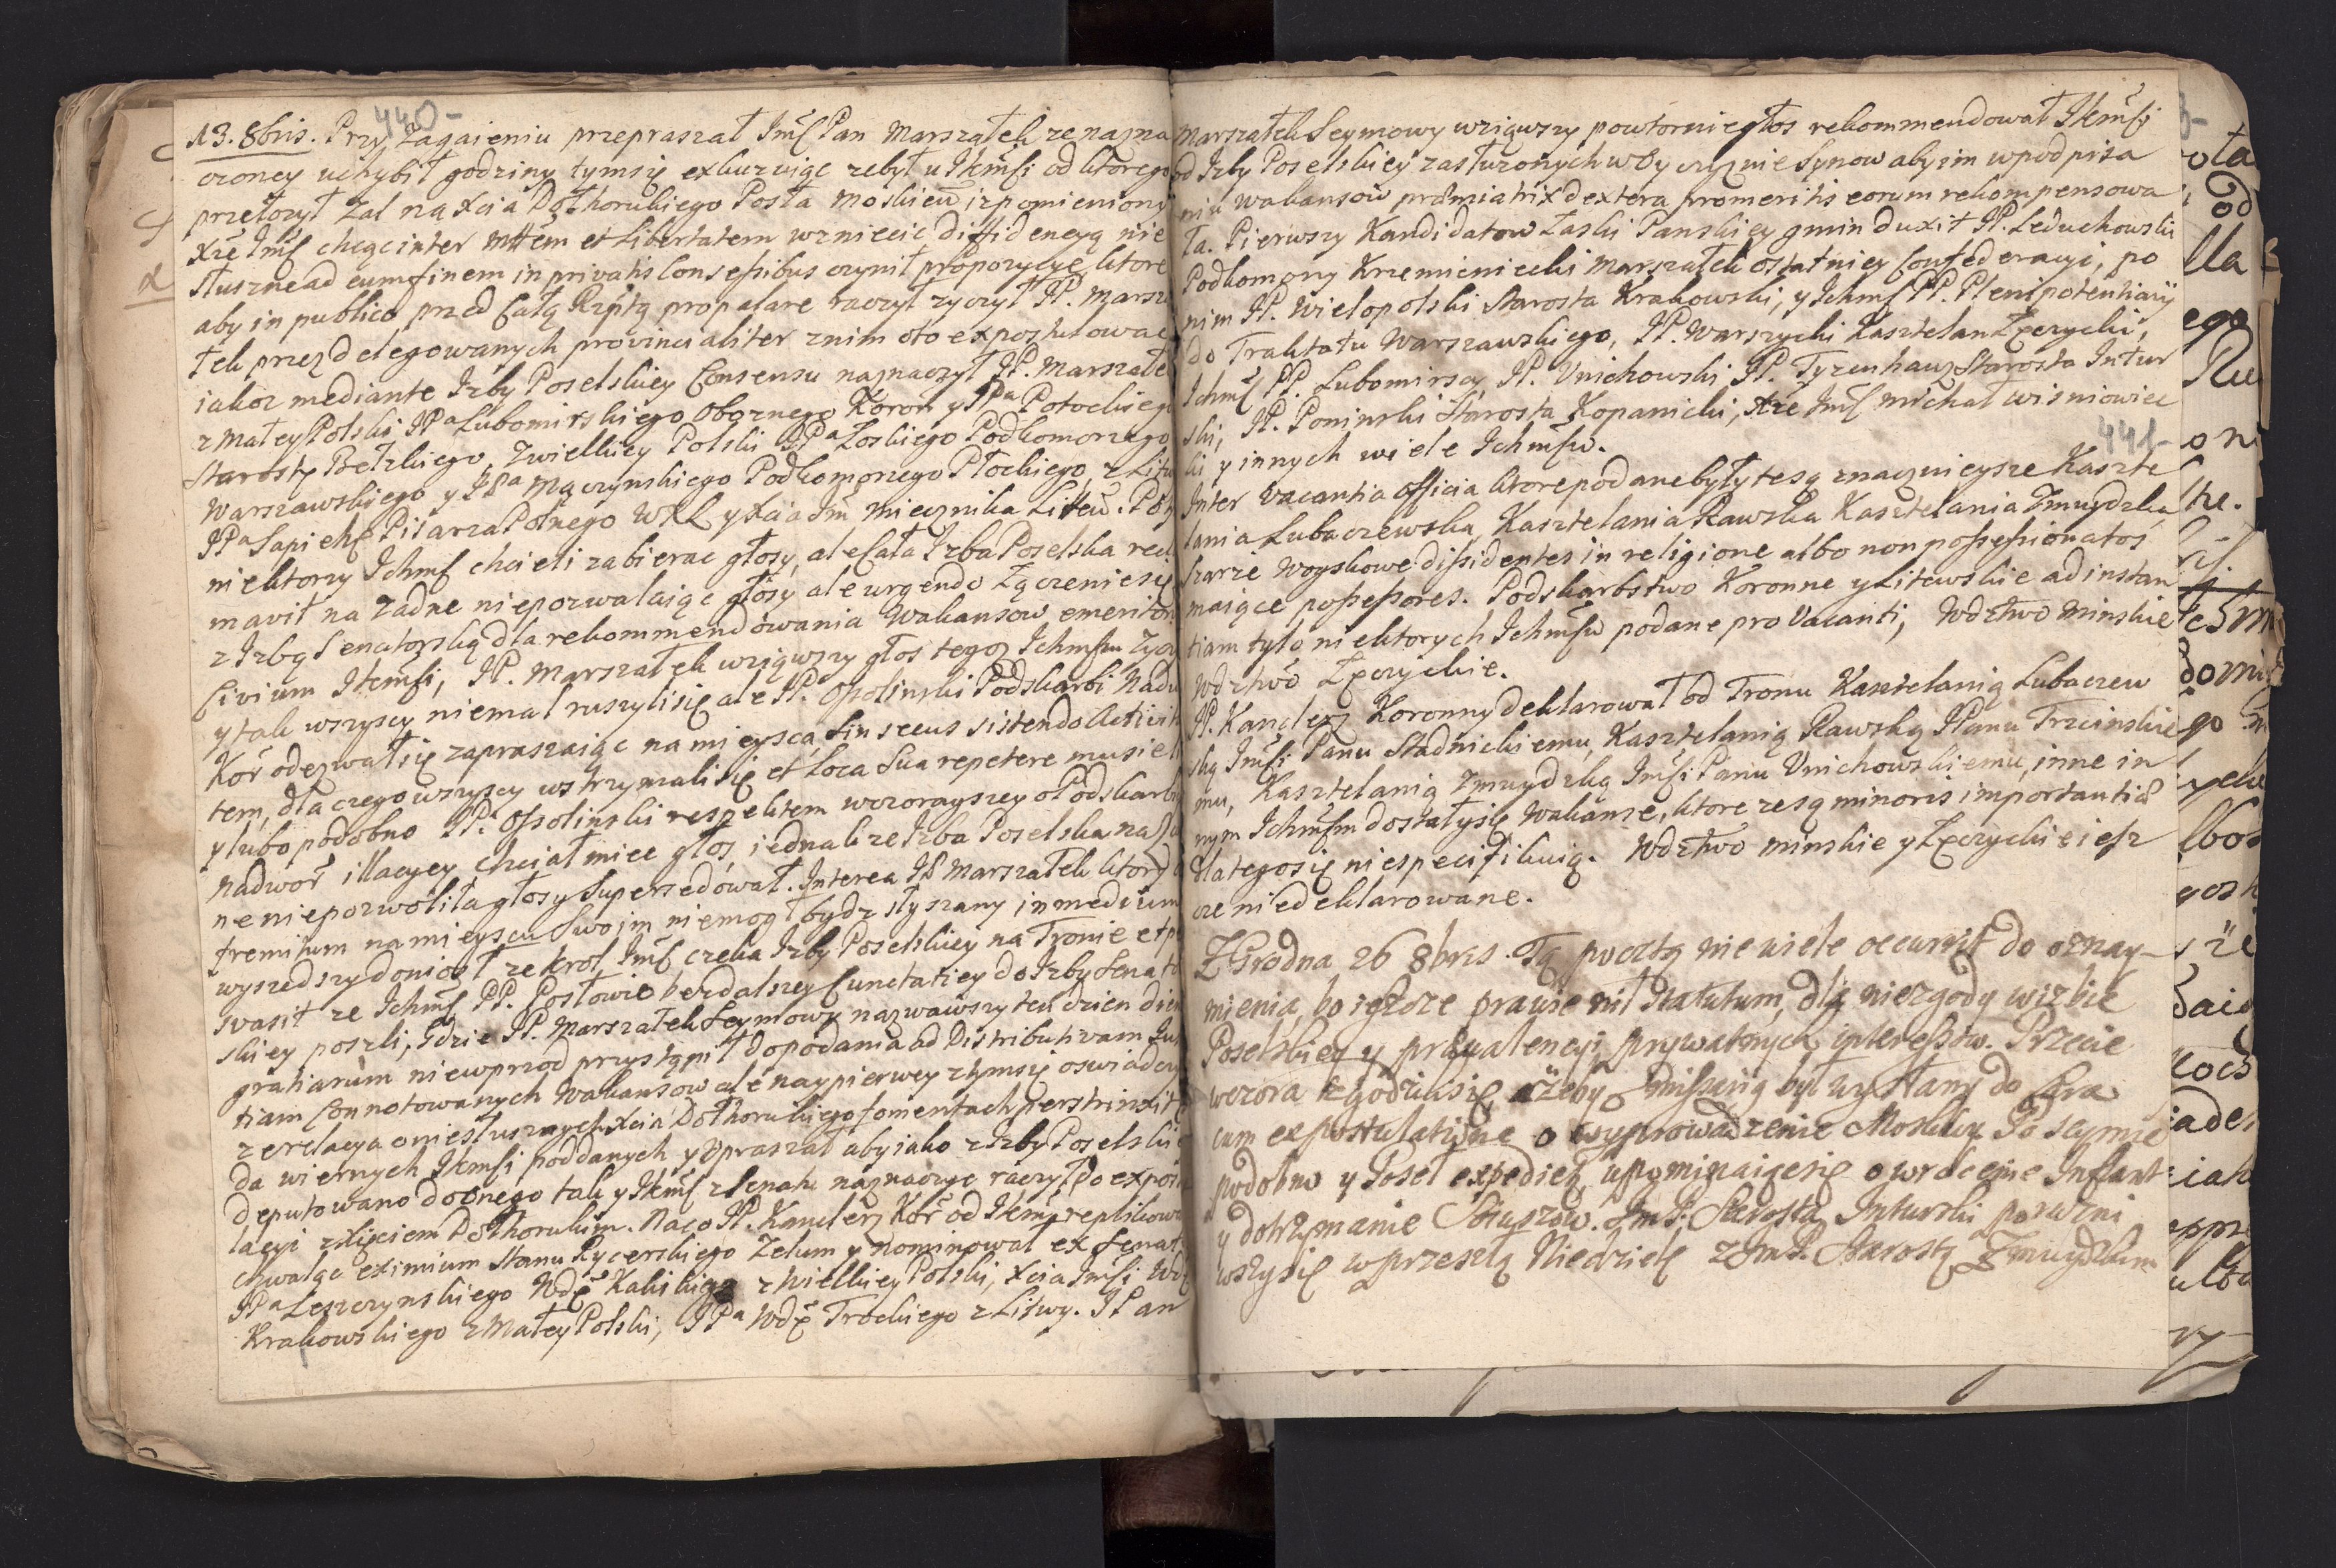 440-
13. 8bris. Przy Zagaieniu przepraszał Imś Pan Marszałek ze nazna
czoney uchybił godziny tymsię exkuzuiąc zebył u Ikmśi od ktorego
przełozył zal na Xcia Dołhorukiego Posła Moskiew izpomieniony
Xże Imś chcąc inter Mttem et Libertatem wzniecic diffidencyą nie
słuszne ad eumfinem in privatis Consessibus czynił propozycye, ktore
aby in publico przed Całą Rzptą propalare raczył zyczył IP. Marsza
łek przez delegowanych provincialiter znim oto expostulowac
iakoz mediante Izby Poselskiey Consensu naznaczył IP. Marszałe
z Małey Polski IPa Lubomirskiego Oboznego Koron y IPa Potockiego
Starostę Bełzkiego, Zwielkiey Polski IPa Łoskiego Podkomorzego
Warszawskiego y IPa Mączynskiego Podkomorzego Płockiego, z Litw
IPa Sapiehę Pisarza Polnego WXL y Xcia Im Miecznika Littew.
niektorzy Ichmś chcieli zabierac głosy, ale Cała Izba Poselska recla
mavit na zadne niepozwalaiąc głosy ale urgendo Łączenie się
z Izbą Senatorską dla rekommendowania Wakansow emeritor
Civium Ikmśi, IP. Marszałek wziąwszy głos tegoz Ichmśm zycz
y tak wszyscy niemal ruszylisię ale IP. Ossolinski Podskarbi Nadw
Kor odezwał się zapraszaiąc na mieysca, sin secus sistendo Activita
tem, dla czego wszyscy wstrzymali się et Loca Sua repetere musieli
y lubo podobno IP. Ossolinski respektem wczorayszey o Podskarb
nadwor illacyey chciał miec głos, iednakze Izba Poselska na zad
ne niepozwoliła głosy Supersedował. Interea IP Marszałek ktory
fremitum na mieyscu Swoim niemogł bydz słyszany in medium
wyszedszy doniosł ze Krol Imś czeka Izby Poselskiey na Tronie et per
svasit ze Ichmś PP. Posłowie bezdalszey Cunctatiey do Izby Senator
skiey poszli, gdzie IP. Marszałek Seymowy nazwawszy ten dzien diem
gratiarum niewprzod przystąpił do podania ad Distributivam Jus
tiam Connotowanych Wakansow ale naypierwey ztymsię oswiadczy
ze relacya o niesłusznych Xcia Dołhorukiego fomentach perstrinxit
da wiernych Ikmśi poddanych y Upraszał aby iako z Izby Poselskie
deputowano do onego tak y Ikmś z Senatu naznaczyc raczył do expostu
lacyi z Xięciem Dołhorukim. Na co IP. Kanclerz Kor od Ikmśi replikowa
chwaląc eximium Stanu Rycerskiego Zelum y nominował ex Senatu
IPa Leszczynskiego Wdę Kaliskiego z Wielkiey Polski, Xcia Imśi Wdę
Krakowskiego z Małey Polski, IPa Wdę Trockiego z Litwy. IPan
Marszałek Seymowy wziąwszy powtornie głos rekommendował Ikmśi
od Izby Poselskiey zasłuzonych w Oyczyznie Synow aby im w podpisa
niu wakansow præmiatrix dextera promeritis eorum rekompensowa
ła. Pierwszy Kandidatow Łaski Panskiey gmin duxit IP. Leduchowski
Podkomorzy Krzemieniecki Marszałek ostatniey Confederacyi, po
nim IP. Wielopolski Starosta Krakowski, y Ichmś PP. Plenipotentiarij
do Traktatu Warszawskiego, IP. Warszycki Kasztelan Łęczycki,
Ichmś PP. Lubomirscy, IP. Unichowski IP. Tyzenhauz Starosta Intur
ski, IP. Poninski Starosta Kopanicki, Xże Imś Michał Wisniowiec
ki y innych wiele Ichmśw.
441-
Inter Vacantia Officia ktore podane były te są znacznieysze Kaszte
lania Lubaczewska, Kasztelania Rawska Kasztelania Zmuydzka,
Szarze Woyskowe dissidentes in religione albo non possessionatos
maiące possessores. Podskarbstwo Koronne y Litewskie ad instan
tiam tylo niektorych Ichmśw podane pro Vacanti, Wdztwo Minskie
Wdztwo Łęczyckie.
IP. Kanclerz Koronny deklarował od Tronu Kasztelanią Lubaczew
ską Imśi Panu Stadnickiemu, Kasztelanią Rawską IPanu Trzcinskie
mu, Kasztelanią Zmuydzką Imśi Panu Unichowskiemu, inne in
nym Ichmśm dostały się Wakanse, ktore ze są minoris importantiæ
dla tego się niespecifikuią. Wdztwo Minskie y Łęczyckie iesz
cze niedeklarowane.
Z Grodna 26 8bris. Tą pocztą nie wiele occurrit do oznay-
mienia, bo ieszcze prawie nil statutum, dla niezgody w izbie
Poselskiey y prævalencyi prywatnych interessow. Przecie
wczora zgodzili się ażeby Emissariusz był wysłany do Cara
cum expostulatione o wyprowadzenie Moskwy. Po seymie
podobno y Poseł expedietur upominaiąc się o wrocenie Inflant
y dotrzymanie Soiuszow. Im P. Starosta Inturski porużni
wszy się w przeszłą Niedzielę z Im P. Starostą Zmuydzkim